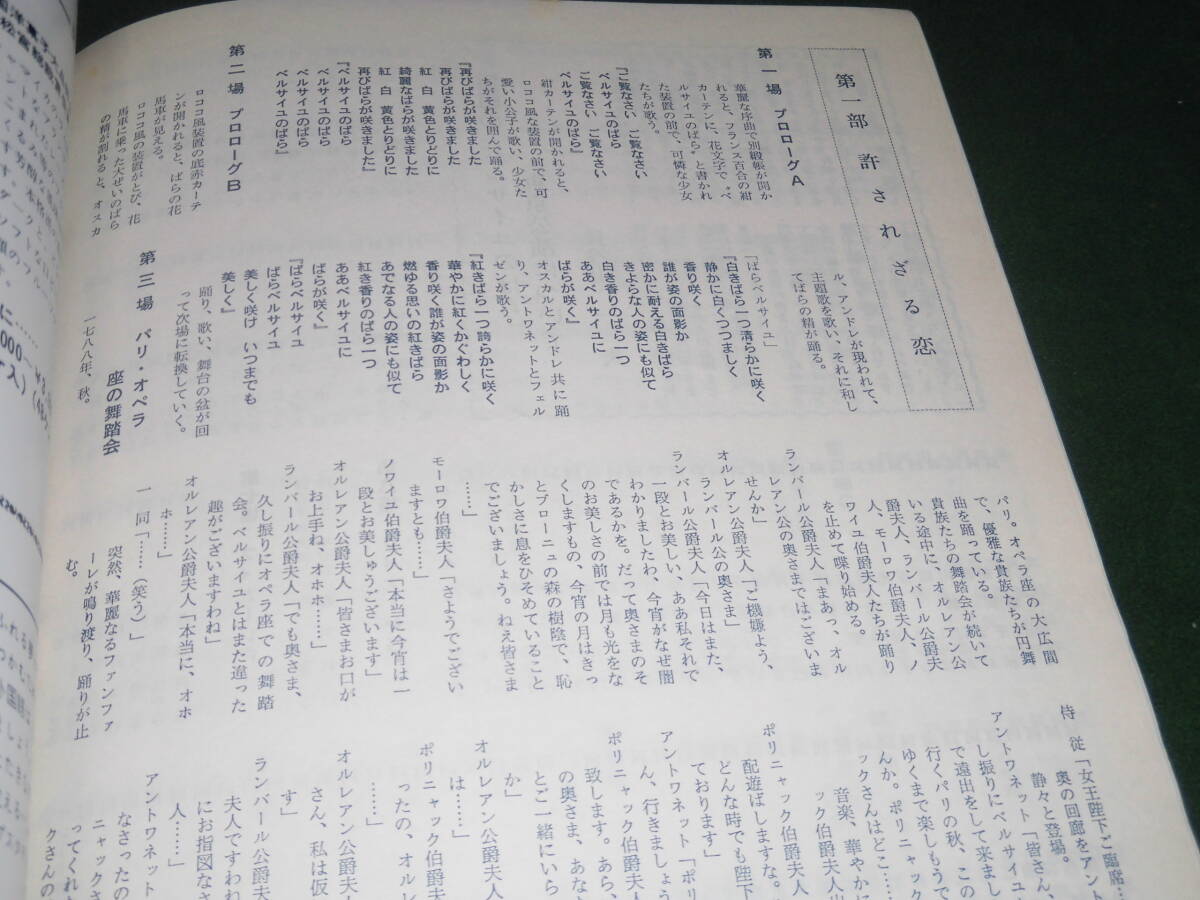 第一部　許されざる恋
第一場　プロローグA
華麗な序曲で別緞帳が開か
れると、フランス百合の紺
カーテンに、花文字で〝ベ
ルサイユのばら〟と書かれ
た装置の前で、可憐な少女
たちが歌う。
『ご覧なさい　ご覧なさい
ベルサイユのばら
ご覧なさい　ご覧なさい
ベルサイユのばら』
紺カーテンが開かれると、
ロココ風な装置の前で、可
愛い小公子が歌い、少女た
ちがそれを囲んで踊る。
『再びばらが咲きました
再びばらが咲きました
紅　白　黄色とりどりに
綺麗なばらが咲きました
紅　白　黄色とりどりに
再びばらが咲きました』
『ベルサイユのばら
ベルサイユのばら
ベルサイユのばら
ベルサイユのばら』
第二場　プロローグB
ロココ風装置の底赤カーテ
ンが開かれると、ばらの花
馬車が見える。
ロココ風の装置がとび、花
馬車に乗った大ぜいのばら
の精が割れると、オスカ
ル、アンドレが現われて、
主題歌を歌い、それに和し
てばらの精が踊る。
「ばらベルサイユ」
『白きばら一つ清らかに咲く
静かに白くつつましく
香り咲く
誰が姿の面影か
密かに耐える白きばら
きよらな人の姿にも似て
白き香りのばら一つ
ああベルサイユに
ばらが咲く』
オスカルとアンドレ共に踊
り、アントワネットとフェル
ゼンが歌う。
『紅きばら一つ誇らかに咲く
華やかに紅くかぐわしく
香り咲く誰が姿の面影か
燃ゆる思いの紅きばら
あでなる人の姿にも似て
紅き香りのばら一つ
ああベルサイユに
ばらが咲く』
『ばらベルサイユ
ばらベルサイユ
美しく咲け　いつまでも
美しく』
踊り、歌い、舞台の盆が回
って次場に転換していく。
第三場　パリ・オペラ
座の舞踏会
一七八八年、秋。
パリ。オペラ座の大広間
で、優雅な貴族たちが円舞
曲を踊っている。
貴族たちの舞踏会が続いて
いる途中に、オルレアン公
爵夫人、ランバール公爵夫
人、モーロワ伯爵夫人、ノ
ワイユ伯爵夫人たちが踊り
を止めて喋り始める。
ランバール公爵夫人「まあっ、オル
レアン公の奥さまではございま
せんか」
オルレアン公爵夫人「ご機嫌よう、
ランバール公の奥さま」
ランバール公爵夫人「今日はまた、
一段とお美しい、ああ私それで
わかりましたわ、今宵がなぜ闇
であるかを。だって奥さまのそ
のお美しさの前では月も光をな
くしますもの、今宵の月はきっ
とブローニュの森の樹陰で、恥
かしさに息をひそめていること
でございましょう。ねえ皆さま
……」
モーロワ伯爵夫人「さようでござい
ますとも……」
ノワイユ伯爵夫人「本当に今宵は一
段とお美しゅうございます」
オルレアン公爵夫人「皆さまお口が
お上手ね、オホホ……」
ランバール公爵夫人「でも奥さま、
久し振りにオペラ座での舞踏
会。ベルサイユとはまた違った
趣がございますわね」
オルレアン公爵夫人「本当に、オホ
ホ……」
一　同「……（笑う）」
突然、華麗なるファンファ
ーレが鳴り渡り、踊りが止
む。
侍　従「女王陛下ご臨席…
奥の回廊をアント
静々と登場。
アントワネット「皆さん、
し振りにベルサイユ
で遠出をして来まし
行く、パリの秋、この
ゆくまで楽しもうで
んか。ポリニャック
ックさんはどこ……
音楽、華やかに
ック伯爵夫人出
ポリニャック伯爵夫人
配遊ばしますな。
どんな時でも陛下
ております」
アントワネット「ポリ
ん、行きましょう
ポリニャック伯爵夫人
致します。あら、
の奥さま、あなた
とご一緒にいら
か」
オルレアン公爵夫人
は……」
ポリニャック伯爵
ったの、オル
……」
オルレアン公爵夫
さん、私は仮
す」
ランバール公爵
夫人ですわね
にお指図なさ
人……」
アントワネット
なさったの
ニャックさ
ってくれ
クさんの